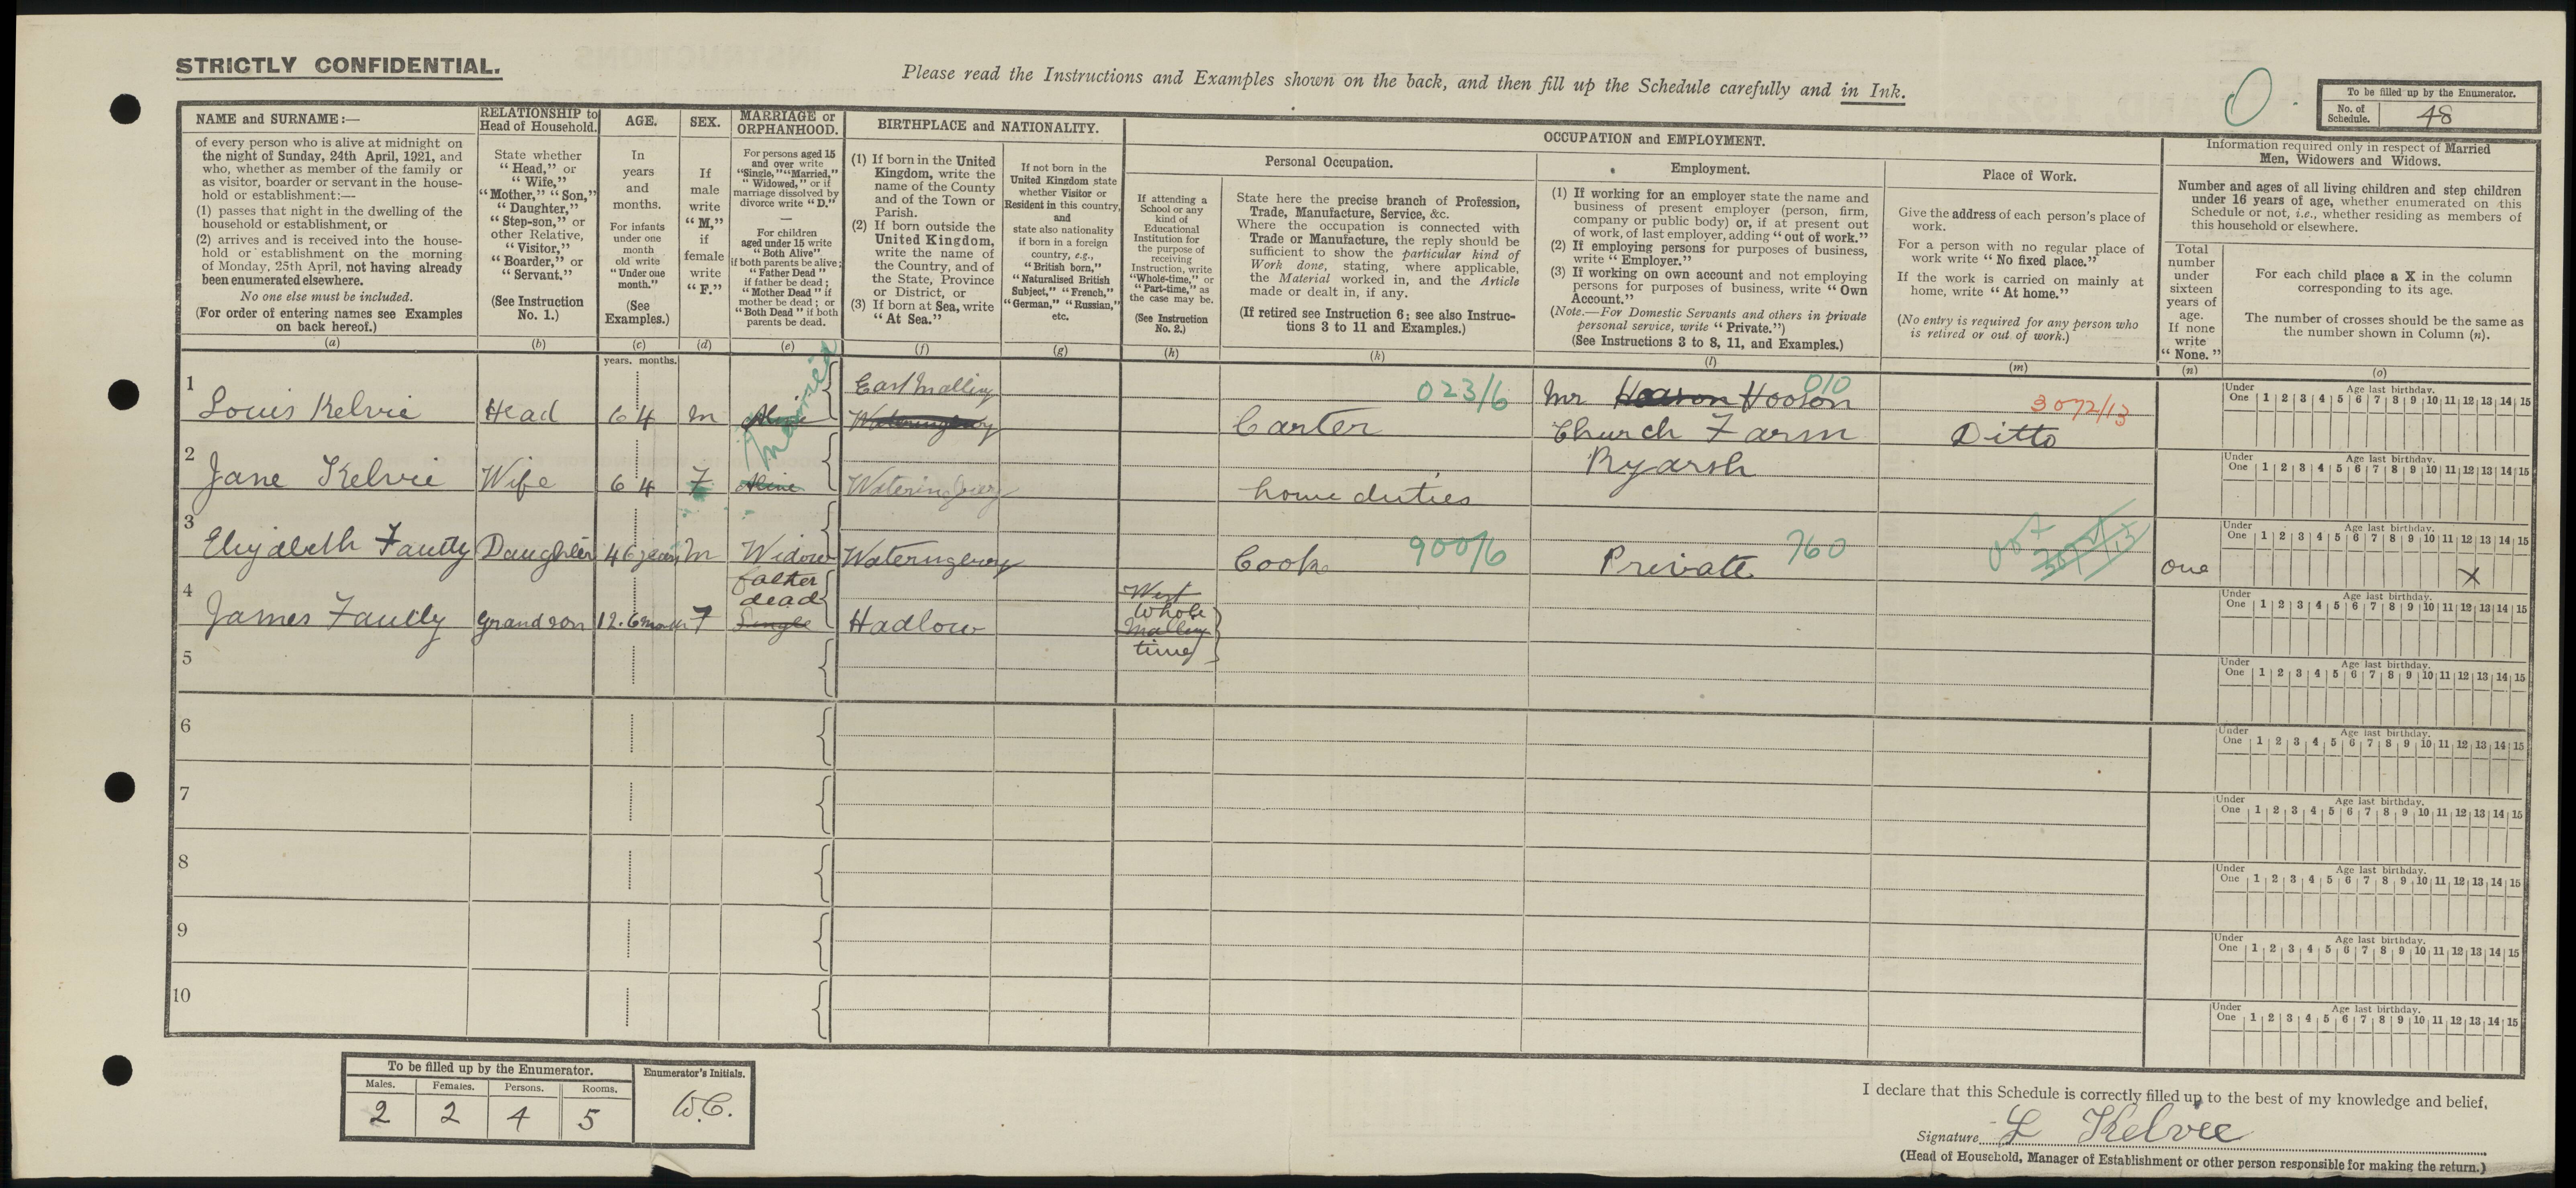 STRICTLY CONFIDENTIAL.
Please read the Instructions and Examples shown on the back, and then fill up the Schedule carefully and in Ink.
To be filled up by the Enumerator.
No. of Schedule. 48
NAME and SURNAME:—
of every person who is alive at midnight on
the night of Sunday, 24th April, 1921, and
who, whether as member of the family or
as visitor, boarder or servant in the house-
hold or establishment:—
(1) passes that night in the dwelling of the
household or establishment, or
(2) arrives and is received into the house-
hold or establishment on the morning
of Monday, 25th April, not having already
been enumerated elsewhere.
No one else must be included.
(For order of entering names see Examples
on back hereof.)
(a)
RELATIONSHIP to
Head of Household.
State whether
"Head," or
"Wife,"
"Mother," "Son,"
"Daughter,"
"Step-son," or
other Relative,
"Visitor,"
"Boarder," or
"Servant."
(See Instruction
No. 1.)
(b)
AGE.
In
years
and
months.
For infants
under one
month
old write
"Under one
month."
(See
Examples.)
(c)
SEX.
If
male
write
"M,"
if
female
write
"F."
(d)
MARRIAGE or
ORPHANHOOD.
For persons aged 15
and over write
"Single," "Married,"
"Widowed," or if
marriage dissolved by
divorce write "D."
For children
aged under 15 write
"Both Alive"
if both parents be alive;
"Father Dead"
if father be dead;
"Mother Dead" if
mother be dead; or
"Both Dead" if both
parents be dead.
(e)
BIRTHPLACE and NATIONALITY.
(1) If born in the United
Kingdom, write the
name of the County
and of the Town or
Parish.
(2) If born outside the
United Kingdom,
write the name of
the Country, and of
the State, Province
or District, or
(3) If born at Sea, write
"At Sea."
(f)
If not born in the
United Kingdom state
whether Visitor or
Resident in this country,
and
state also nationality
if born in a foreign
country, e.g.,
"British born,"
"Naturalised British
Subject," "French,"
"German," "Russian,"
etc.
(g)
OCCUPATION and EMPLOYMENT.
Personal Occupation.
If attending a
School or any
kind of
Educational
Institution for
the purpose of
receiving
Instruction, write
"Whole-time," or
"Part-time," as
the case may be.
(See Instruction
No. 2.)
(h)
State here the precise branch of Profession,
Trade, Manufacture, Service, &c.
Where the occupation is connected with
Trade or Manufacture, the reply should be
sufficient to show the particular kind of
Work done, stating, where applicable,
the Material worked in, and the Article
made or dealt in, if any.
(If retired see Instruction 6; see also Instruc-
tions 3 to 11 and Examples.)
(k)
Employment.
(1) If working for an employer state the name and
business of present employer (person, firm,
company or public body) or, if at present out
of work, of last employer, adding "out of work."
(2) If employing persons for purposes of business,
write "Employer."
(3) If working on own account and not employing
persons for purposes of business, write "Own
Account."
(Note.—For Domestic Servants and others in private
personal service, write "Private.")
(See Instructions 3 to 8, 11, and Examples.)
(l)
Place of Work.
Give the address of each person's place of
work.
For a person with no regular place of
work write "No fixed place."
If the work is carried on mainly at
home, write "At home."
(No entry is required for any person who
is retired or out of work.)
(m)
Information required only in respect of Married
Men, Widowers and Widows.
Number and ages of all living children and step children
under 16 years of age, whether enumerated on this
Schedule or not, i.e., whether residing as members of
this household or elsewhere.
Total
number
under
sixteen
years of
age.
If none
write
"None."
(n)
For each child place a X in the column
corresponding to its age.
The number of crosses should be the same as
the number shown in Column (n).
(o)
years. months.
married
1 Louis Kelvie Head 64 M East Malling Carter 023/6 Mr Hooson 010
Church Farm Ditto 3072/13
Ryarsh
2 Jane Kelvie Wife 64 F Wateringbury home duties
3 Elizabeth Fautly Daughter 46 years M Widow Wateringbury Cook 900/6 Private 760 one X
4 James Fautly Grandson 12.6 F father dead Single Hadlow West Malling Whole time
5
6
7
8
9
10
Under One 1 2 3 4 5 6 7 8 9 10 11 12 13 14 15
Age last birthday.
Under One 1 2 3 4 5 6 7 8 9 10 11 12 13 14 15
Age last birthday.
Under One 1 2 3 4 5 6 7 8 9 10 11 12 13 14 15
Age last birthday.
Under One 1 2 3 4 5 6 7 8 9 10 11 12 13 14 15
Age last birthday.
Under One 1 2 3 4 5 6 7 8 9 10 11 12 13 14 15
Age last birthday.
Under One 1 2 3 4 5 6 7 8 9 10 11 12 13 14 15
Age last birthday.
Under One 1 2 3 4 5 6 7 8 9 10 11 12 13 14 15
Age last birthday.
Under One 1 2 3 4 5 6 7 8 9 10 11 12 13 14 15
Age last birthday.
Under One 1 2 3 4 5 6 7 8 9 10 11 12 13 14 15
Age last birthday.
Under One 1 2 3 4 5 6 7 8 9 10 11 12 13 14 15
Age last birthday.
To be filled up by the Enumerator.
Males. Females. Persons. Rooms.
2 2 4 5
Enumerator's Initials.
W.C.
I declare that this Schedule is correctly filled up to the best of my knowledge and belief,
Signature L Kelvie
(Head of Household, Manager of Establishment or other person responsible for making the return.)